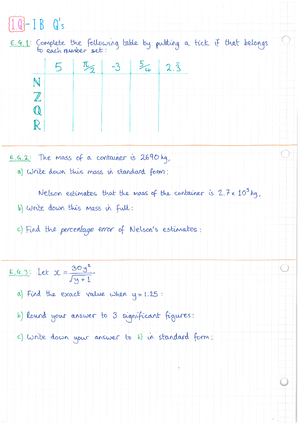 1Q - IB Q's
E.G.1: Complete the following table by putting a tick if that belongs
to each number set:
5 π/2 -3 5/6 2.3̇
ℕ
ℤ
ℚ
ℝ
E.G.2: The mass of a container is 2690 kg,
a) Write down this mass in standard form:
Nelson estimates that the mass of the container is 2.7 x 10³ kg,
b) Write down this mass in full:
c) Find the percentage error of Nelson's estimates:
E.G.3: Let x = 30y² / √y+1
a) Find the exact value when y = 1.25:
b) Round your answer to 3 significant figures:
c) Write down your answer to b) in standard form: